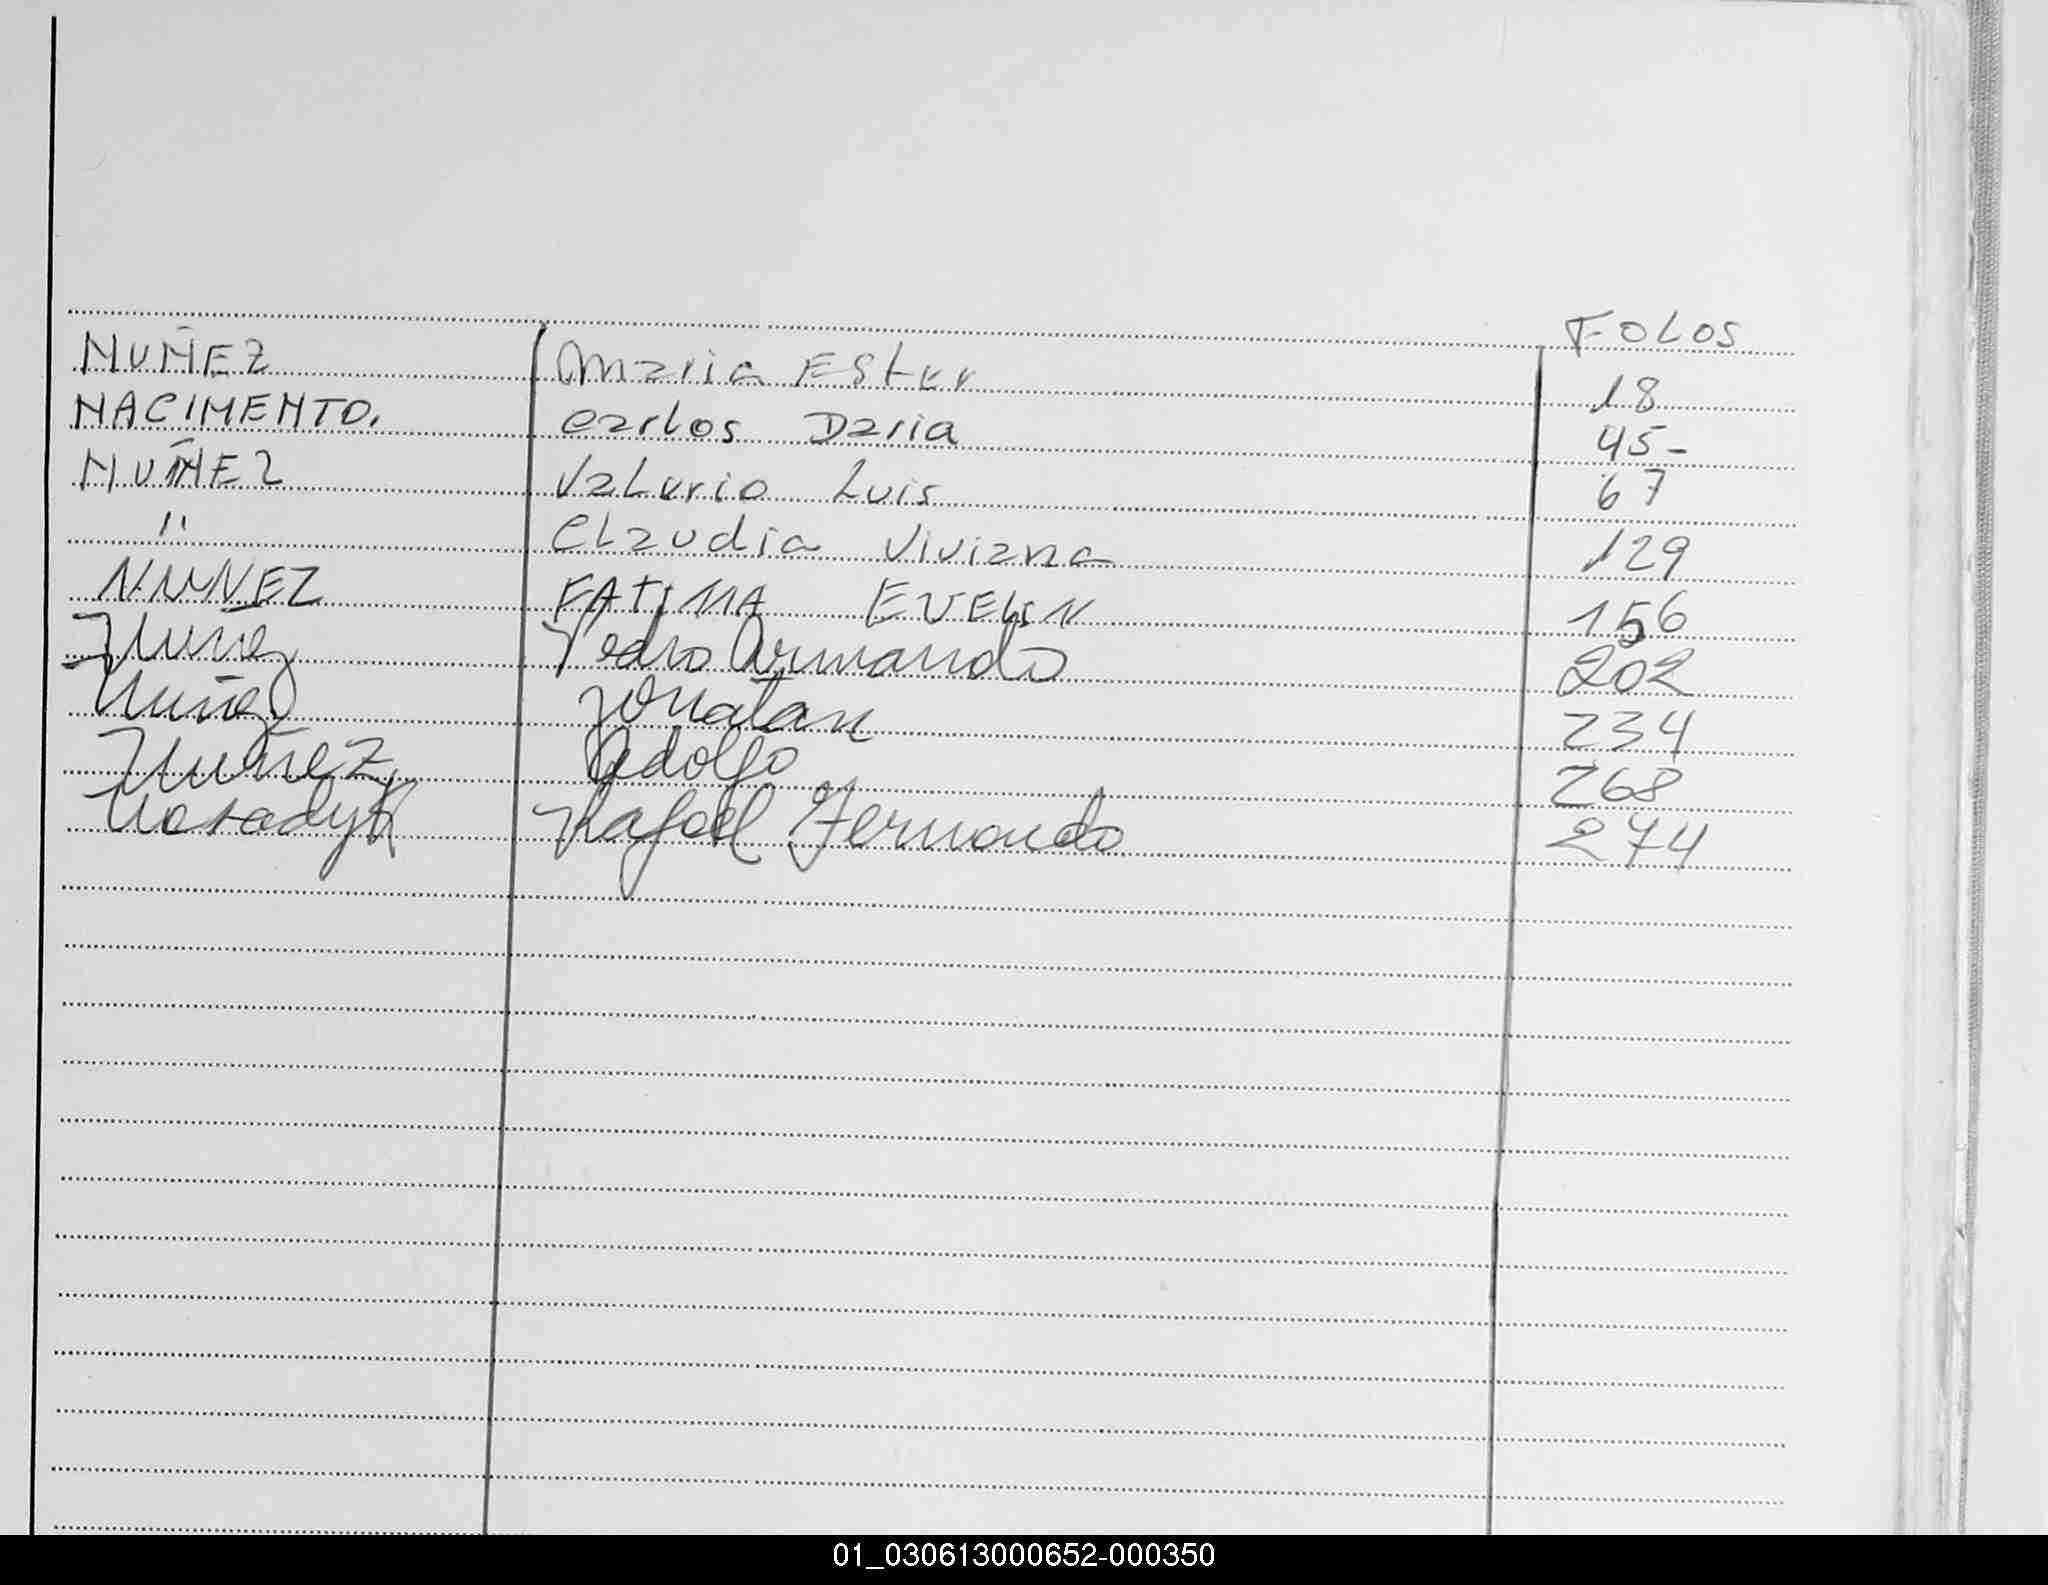 FOLOS
NUÑEZ Maria Ester 18
NACIMENTO. Carlos Daria 45-
NUÑEZ Valerio Luis 67
" Claudia Viviana 129
NUNEZ FATIMA EVELIN 156
Nunez Pedro Armando 202
Nuñez Jonatan 234
Nuñez Adolfo 268
Rafael Fernando 274
01_030613000652-000350